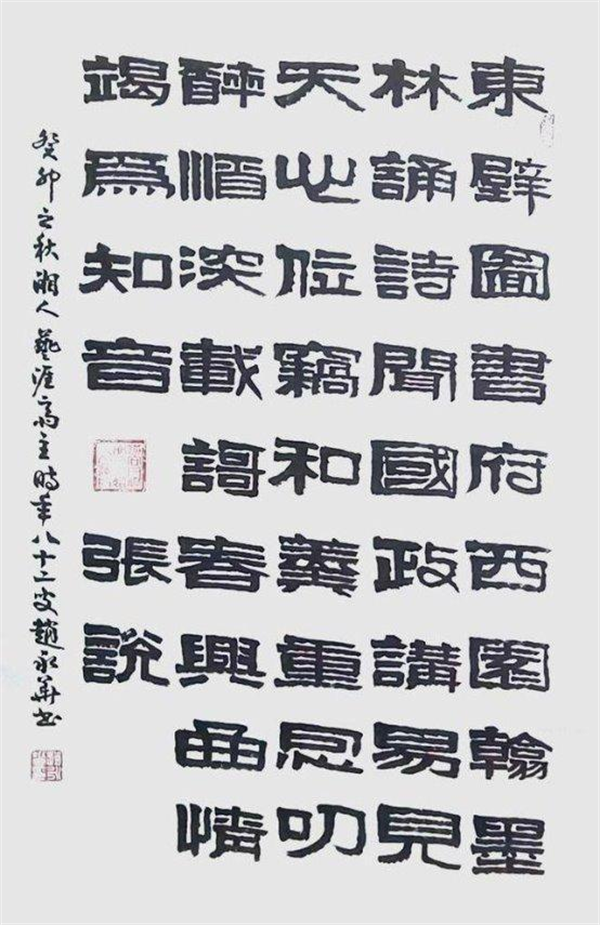 東壁圖書府西園翰墨
林誦詩聞國政講易見
天心位竊和羹重恩叨
醉酒深載謌春興曲情
竭爲知音 張說
癸卯之秋湘人藝涯齋主時年八十二叟趙永華書